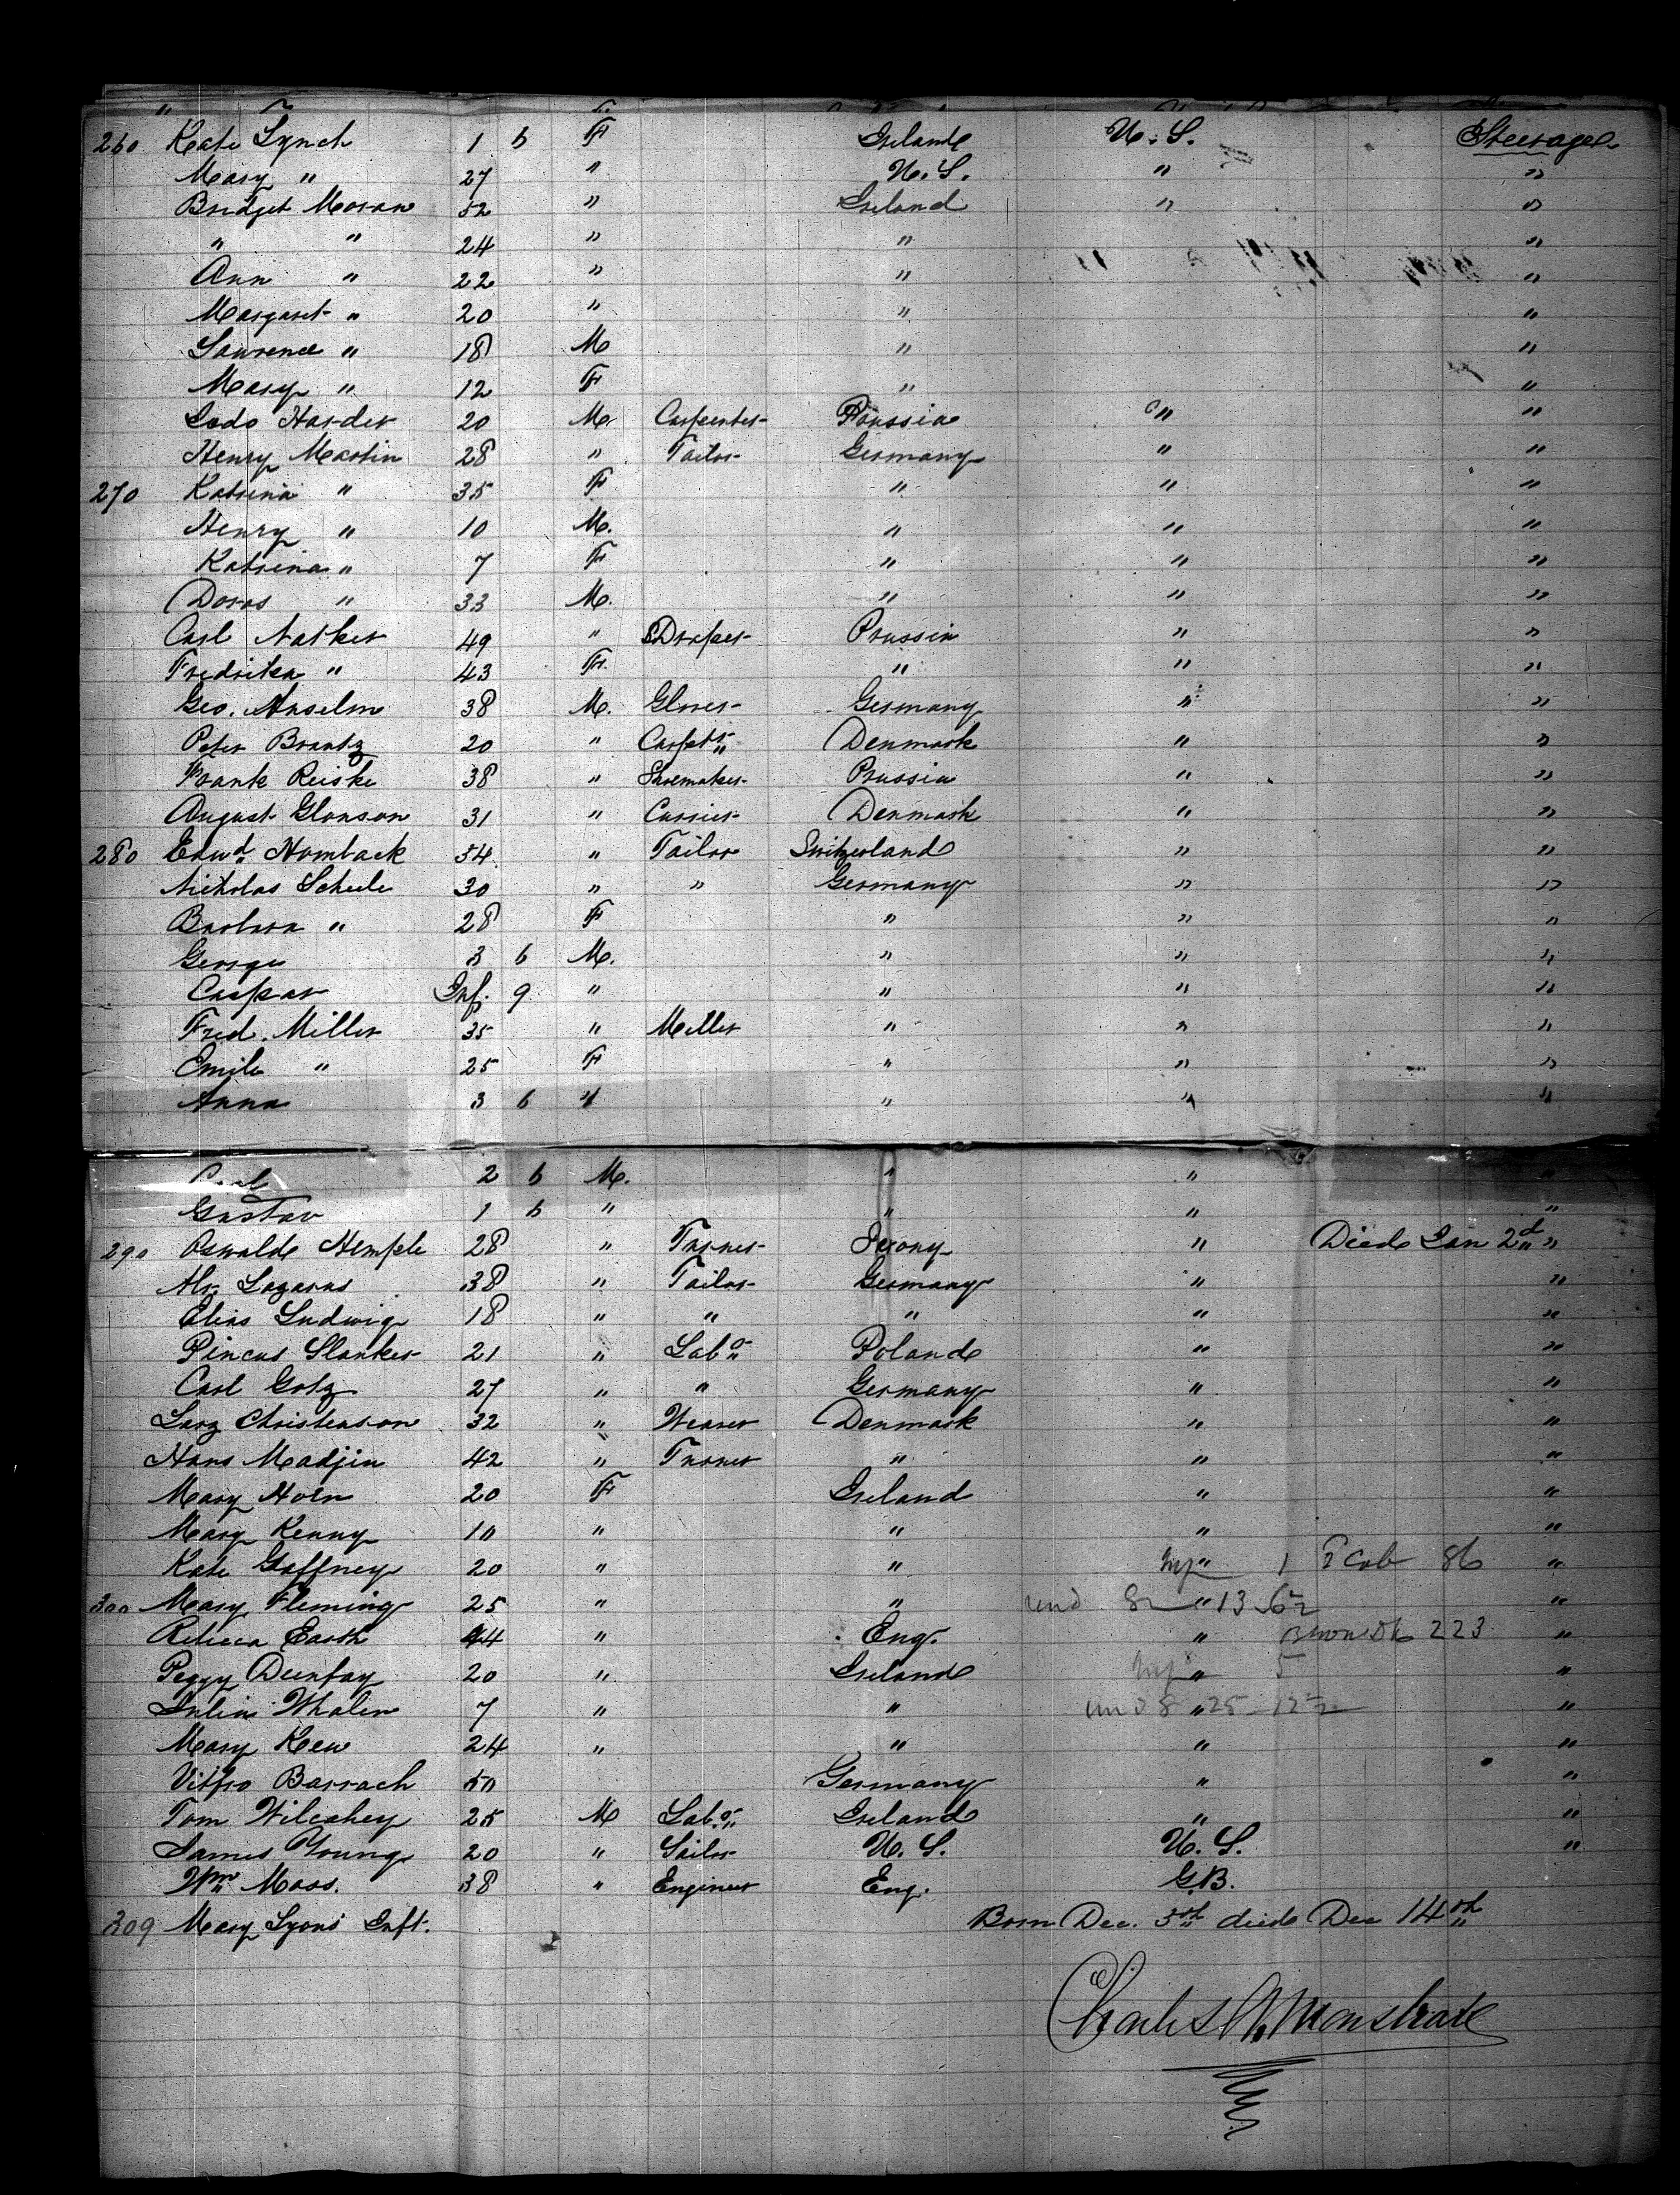 260 Kate Lynch 1 6 F Ireland U.S. Steerage
Mary " 27 " U.S. " "
Bridget Moran 52 " Ireland " "
" " 24 " " "
Ann " 22 " " "
Margaret " 20 " " "
Lawrence " 18 M " "
Mary " 12 F " "
Lodo Harder 20 M. Carpenter Prussia " "
Henry Martin 28 " Tailor Germany " "
270 Katrina " 35 F " " "
Henry " 10 M. " " "
Katrina " 7 F " " "
Doras " 33 M. " " "
Carl Natker 49 " Draper Prussia " "
Fredrika " 43 F. " " "
Geo. Anselm 38 M. Glover Germany " "
Peter Brantz 20 " Carptr Denmark " "
Frank Reiske 38 " Shoemaker Prussia " "
August Glonson 31 " Currier Denmark " "
280 Edwd Homback 54 " Tailor Switzerland " "
Nicholas Scheele 30 " " Germany " "
Barbara " 28 F " " "
George 3 6 M. " " "
Caspar Inf. 9 " " " "
Fred. Miller 35 " Miller " " "
Emile " 25 F " " "
Anna 3 6 " " " "
Carl 2 6 M. " " "
Gustav 1 6 " " " "
290 Oswalde Hemple 28 " Turner Saxony " Died Jan 2d "
Mr. Lazarus 38 " Tailor Germany " "
Elias Ludwig 18 " " " " "
Pincus Slanker 21 " Labr Poland " "
Carl Gotz 27 " " Germany " "
Larz Christenson 32 " Weaver Denmark " "
Hans Madjin 42 " Turner " " "
Mary Horn 20 F Ireland " "
Mary Kenny 10 " " " "
Kate Gaffney 20 " " " 1 Cab 86 "
300 Mary Fleming 25 " " und 8 " 13 "
Rebecca Earth 44 " Eng. " 223 "
Peggy Dunfay 20 " Ireland " 5 "
Julia Whalen 7 " " und 8 " 25 "
Mary Kew 24 " " " "
Vitfro Barrach 50 Germany " "
Tom Wilcahey 25 M Labr Ireland " "
James Young 20 " Sailor U.S. U.S. "
Wm Moss. 38 " Engineer Eng. G.B.
309 Mary Lyons Inft. Born Dec. 5th died Dec 14th
Charles